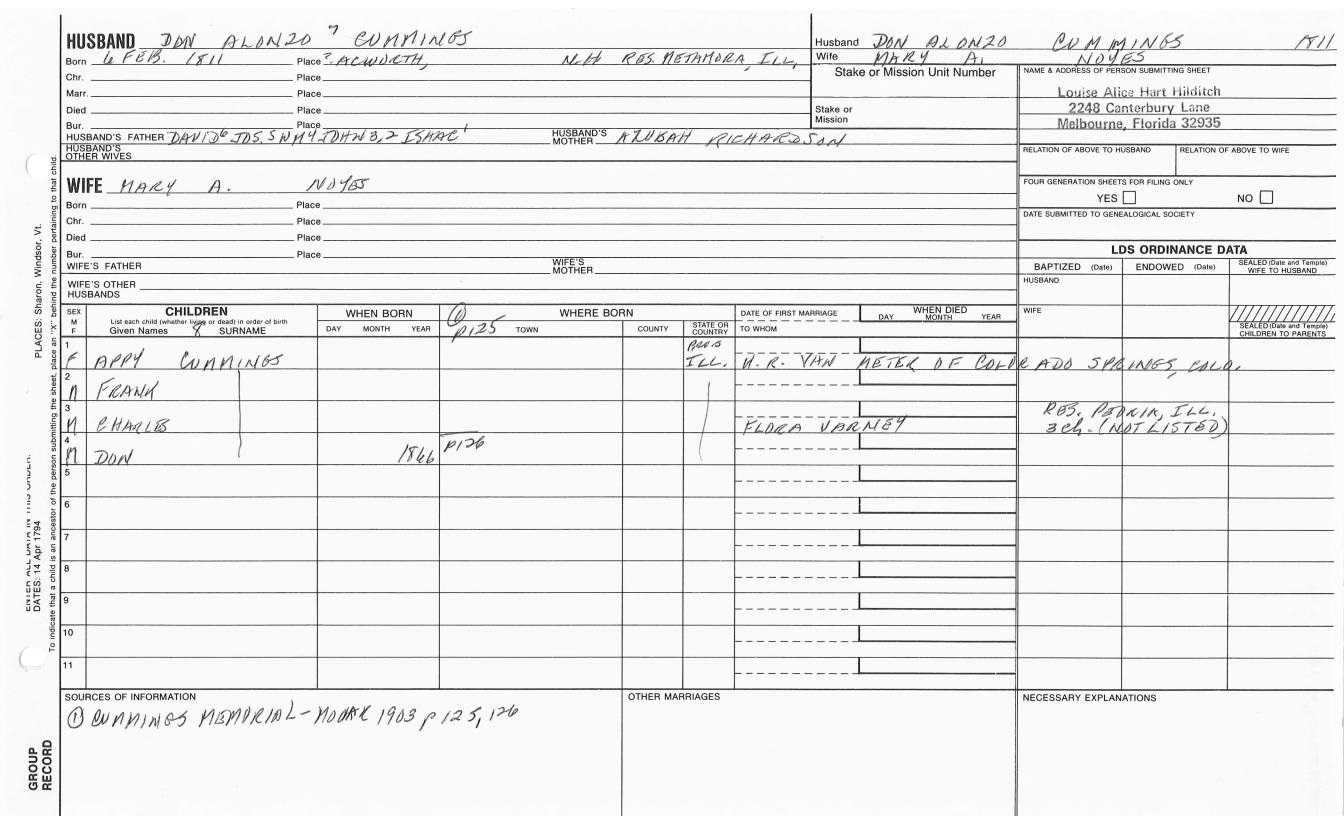 HUSBAND DON ALONZO 7 CUMMINGS
Born 6 FEB. 1811 Place ? ACWORTH, N.H RES. METAMORA, ILL,
Chr. Place
Marr. Place
Died Place
Bur. Place
HUSBAND'S FATHER DAVID6 JOS.5 WM4 JOHN3,2 ISAAC1 HUSBAND'S MOTHER AZUBAH RICHARDSON
HUSBAND'S OTHER WIVES
Husband DON ALONZO CUMMINGS 1811
Wife MARY A. NOYES
Stake or Mission Unit Number
Stake or Mission
NAME & ADDRESS OF PERSON SUBMITTING SHEET
Louise Alice Hart Hilditch
2248 Canterbury Lane
Melbourne, Florida 32935
RELATION OF ABOVE TO HUSBAND RELATION OF ABOVE TO WIFE
FOUR GENERATION SHEETS FOR FILING ONLY
YES NO
DATE SUBMITTED TO GENEALOGICAL SOCIETY
WIFE MARY A. NOYES
Born Place
Chr. Place
Died Place
Bur. Place
WIFE'S FATHER WIFE'S MOTHER
WIFE'S OTHER HUSBANDS
LDS ORDINANCE DATA
BAPTIZED (Date) ENDOWED (Date) SEALED (Date and Temple) WIFE TO HUSBAND
HUSBAND
WIFE
SEALED (Date and Temple) CHILDREN TO PARENTS
SEX M F
CHILDREN
List each child (whether living or dead) in order of birth
Given Names 8 SURNAME
WHEN BORN
DAY MONTH YEAR
① p125
WHERE BORN
TOWN COUNTY STATE OR COUNTRY
DATE OF FIRST MARRIAGE
TO WHOM
WHEN DIED
DAY MONTH YEAR
1 F APPY CUMMINGS ILL. H.R. VAN METER OF COLORADO SPRINGS, COLO.
2 M FRANK
3 M CHARLES FLORA VARNEY RES. PEORIA, ILL.
3 ch. (NOT LISTED)
4 M DON 1866 p126
5
6
7
8
9
10
11
SOURCES OF INFORMATION
① CUMMINGS MEMORIAL - MOOAR 1903 p 125, 126
OTHER MARRIAGES
NECESSARY EXPLANATIONS
PLACES: Sharon, Windsor, Vt.
ENTER ALL DATA IN THIS ORDER:
DATES: 14 Apr 1794
To indicate that a child is an ancestor of the person submitting the sheet, place an "X" behind the number pertaining to that child.
GROUP RECORD